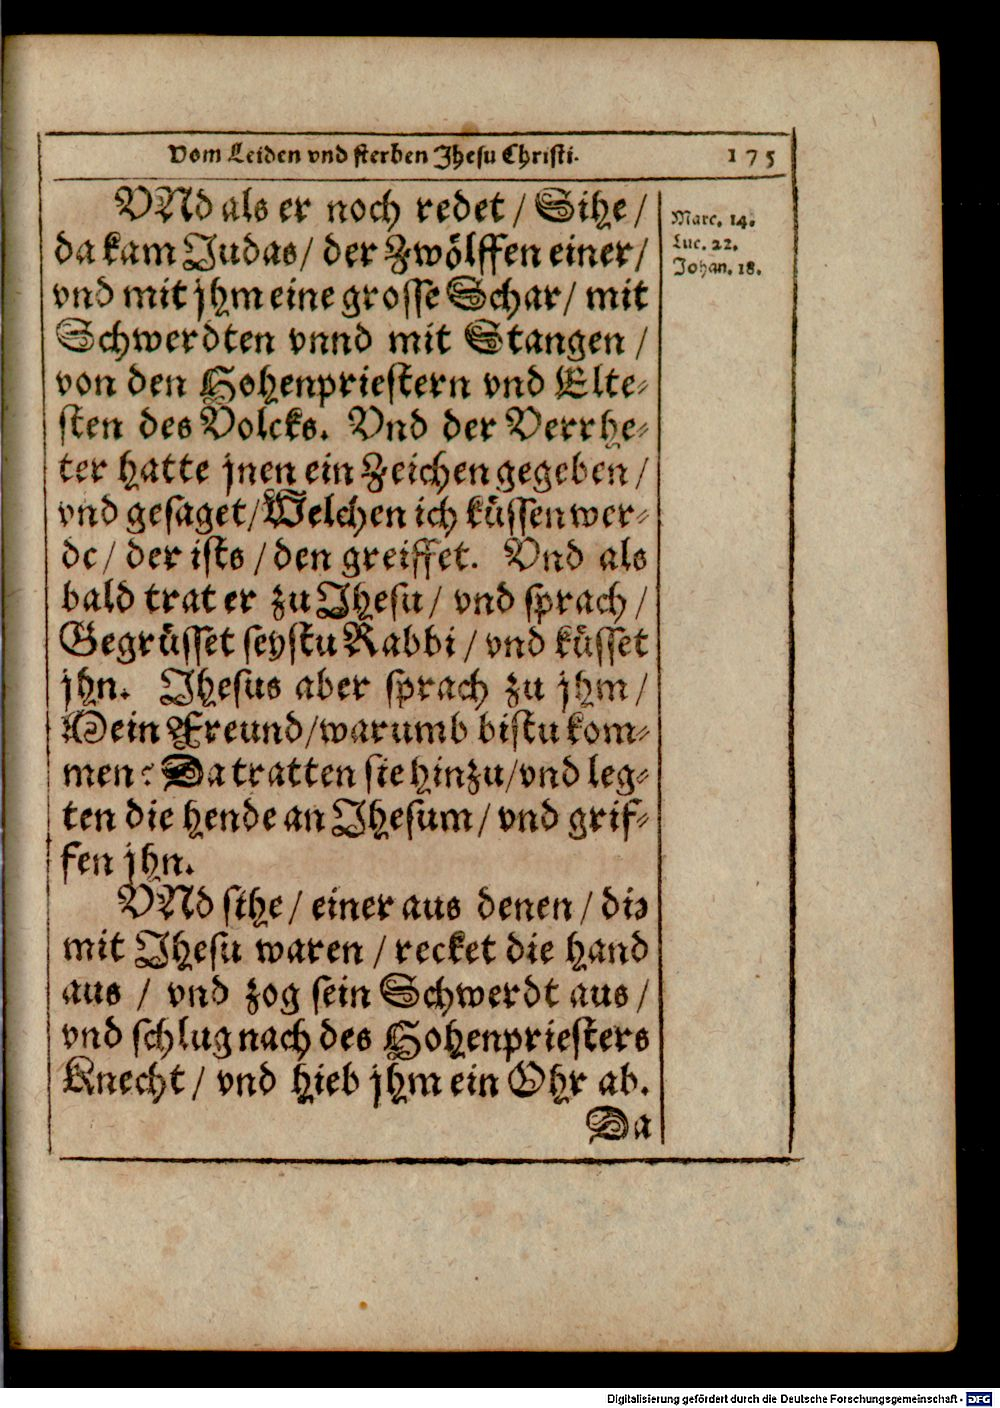 Vom Leiden vnd sterben Jhesu Christi. 175
VNd als er noch redet / Sihe /
da kam Judas / der Zwölffen einer /
vnd mit jhm eine grosse Schar / mit
Schwerdten vnnd mit Stangen /
von den Hohenpriestern vnd Elte-
sten des Volcks. Vnd der Verrhe-
ter hatte jnen ein Zeichen gegeben /
vnd gesaget / Welchen ich küssen wer-
de / der ists / den greiffet. Vnd als
bald trat er zu Jhesu / vnd sprach /
Gegrüsset seystu Rabbi / vnd küsset
jhn. Jhesus aber sprach zu jhm /
Mein Freund / warumb bistu kom-
men? Da tratten sie hinzu / vnd leg-
ten die hende an Jhesum / vnd grif-
fen jhn.
VNd sihe / einer aus denen / die
mit Jhesu waren / recket die hand
aus / vnd zog sein Schwerdt aus /
vnd schlug nach des Hohenpriesters
Knecht / vnd hieb jhm ein Ohr ab.
Da
Marc. 14.
Luc. 22.
Johan. 18.
Digitalisierung gefördert durch die Deutsche Forschungsgemeinschaft - DFG